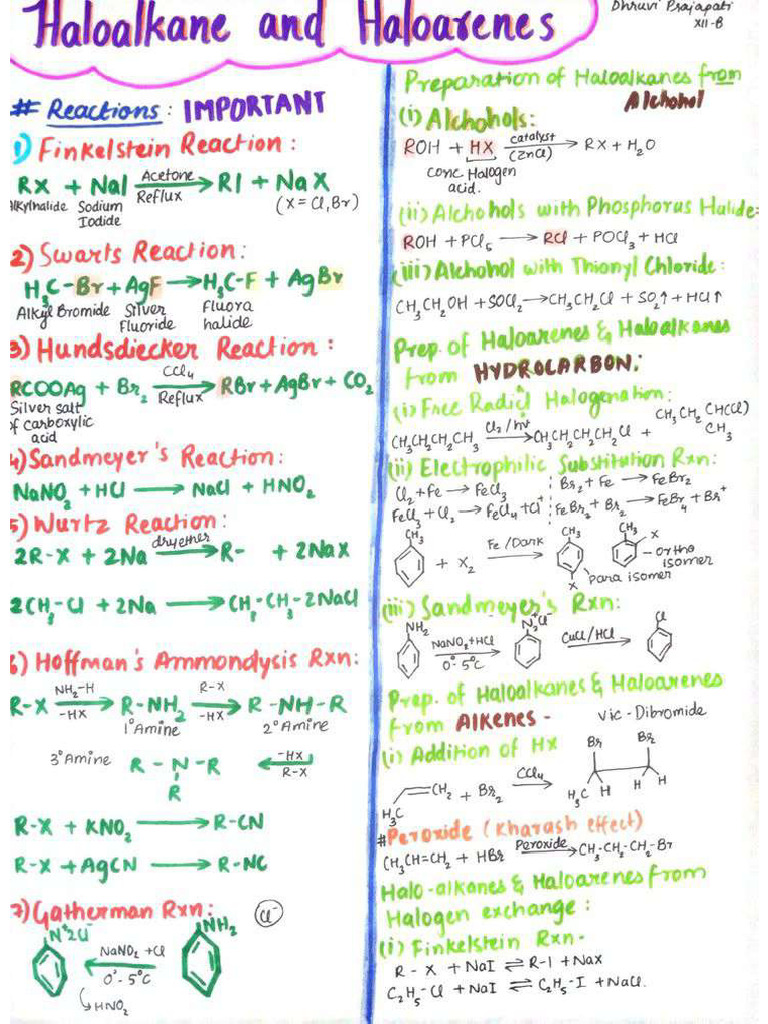 Haloalkane and Haloarenes
Dhruvi Prajapati
XII-B
# Reactions : IMPORTANT
1) Finkelstein Reaction :
RX + NaI Acetone Reflux → RI + NaX
Alkylhalide Sodium Iodide (X = Cl, Br)
2) Swarts Reaction :
H₃C-Br + AgF → H₃C-F + AgBr
Alkyl Bromide Silver Fluoride Fluora halide
3) Hundsdiecker Reaction :
RCOOAg + Br₂ CCl₄ Reflux → RBr + AgBr + CO₂
Silver salt
of carboxylic
acid
4) Sandmeyer's Reaction :
NaNO₂ + HCl → NaCl + HNO₂
5) Wurtz Reaction :
2R-X + 2Na dry ether → R- + 2NaX
2CH₃-Cl + 2Na → CH₃-CH₃-2NaCl
6) Hoffman's Ammondysis Rxn:
R-X NH₂-H -HX → R-NH₂ R-X -HX → R-NH-R
1° Amine 2° Amine
3° Amine R-N-R ← -HX R-X
R
R-X + KNO₂ → R-CN
R-X + AgCN → R-NC
7) Gatherman Rxn: Cl⁻
N⁺2Cl⁻ NH₂
NaNO₂ + Cl
0°-5°C
↳ HNO₂
Preparation of Haloalkanes from
Alchohol
(i) Alchohols:
ROH + HX catalyst (ZnCl) → RX + H₂O
conc. Halogen
acid.
(ii) Alchohols with Phosphorus Halide:
ROH + PCl₅ → RCl + POCl₃ + HCl
(iii) Alchohol with Thionyl Chloride :
CH₃CH₂OH + SOCl₂ → CH₃CH₂Cl + SO₂↑ + HCl↑
Prep. of Haloarenes & Haloalkanes
from HYDROCARBON:
(i) Free Radicl Halogenation :
CH₃CH₂CH₂CH₃ Cl₂/hν → CH₃CH₂CH₂CH₂Cl + CH₃CH₂CHCCl)
CH₃
(ii) Electrophilic Substitution Rxn:
Cl₂ + Fe → FeCl₃ Br₂ + Fe → FeBr₂
FeCl₃ + Cl₂ → FeCl₄ + Cl⁺ FeBr₂ + Br₂ → FeBr₄ + Br⁺
CH₃ + X₂ Fe/Dark → CH₃ X para isomer CH₃ X ortho isomer
(iii) Sandmeyer's Rxn:
NH₂ NaNO₂+HCl 0°-5°C → N₂⁺Cl⁻ CuCl/HCl → Cl
Prep. of Haloalkanes & Haloarenes
from Alkenes - Vic-Dibromide
(i) Addition of Hx
H₃C =CH₂ + Br₂ CCl₄ → Br Br H₃C H H H
# Peroxide (Kharash effect)
CH₃CH=CH₂ + HBr Peroxide → CH₃-CH₂-CH₂-Br
Halo-alkanes & Haloarenes from
Halogen exchange :
(i) Finkelstein Rxn-
R-X + NaI ⇌ R-I + NaX
C₂H₅-Cl + NaI ⇌ C₂H₅-I + NaCl.